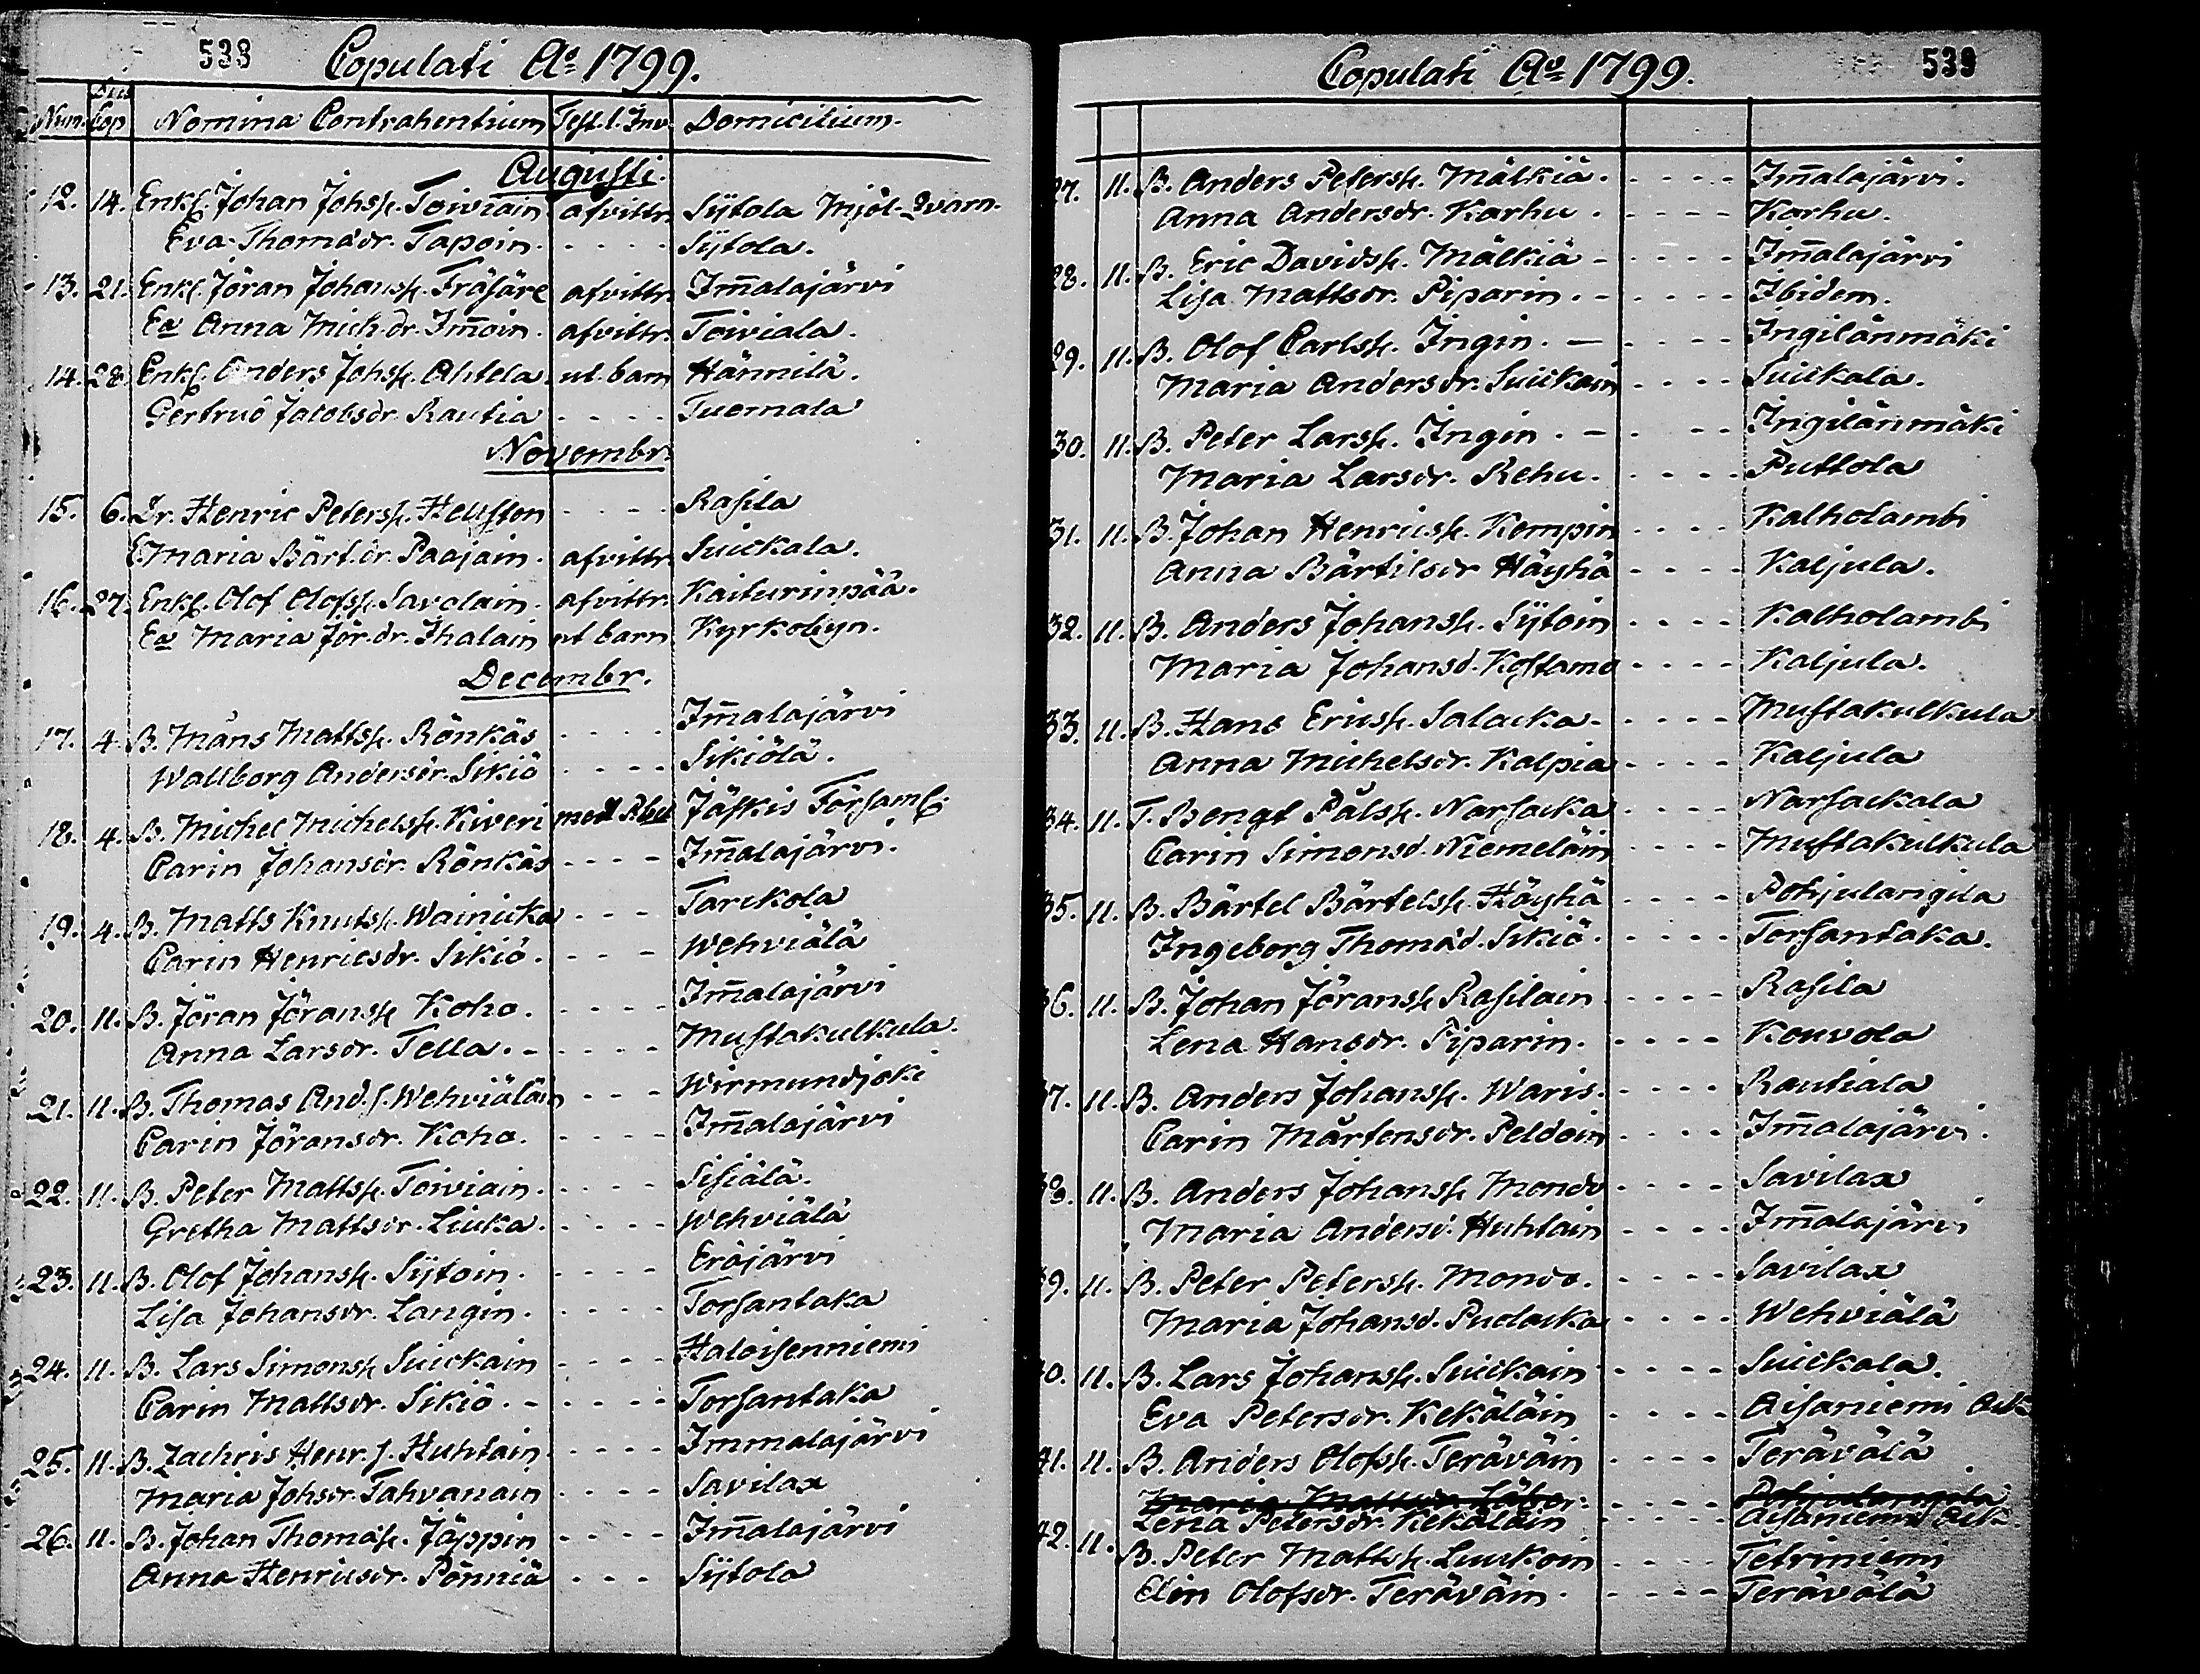 538 Copulati Ao 1799.
Num. Dies Cop. Nomina Contrahentium Test. l. Inv. Domicilium.
Augusti.
12. 14. Enkl. Johan Johss. Toiviain afvittr. Sÿtola Mjöl-Qvarn.
Eva Thomædr. Tapoin. - - - - Sÿtola.
13. 21. Enkl. Jöran Johanss. Fräsäre afvittr. Im̅alajärvi
Ea Anna Mich.dr. Im̅oin. afvittr. Toiviala.
14. 28. Enkl. Anders Johss. Ahtela. ut. barn Hännilä.
Gertrud Jacobsdr. Rautia - - - - Tuomala
Novembr.
15. 6. Dr. Henric Peterss. Hellsten - - - - Rasila
E. Maria Bärt.dr. Paajain. afvittr. Suickala.
16. 27. Enkl. Olof Olofss. Savolain. afvittr. Kaiturinpää.
Ea Maria Jör.dr. Ihalain ut barn Kyrkobyn.
Decembr.
17. 4. B. Måns Mattss. Rönkäs - - - - Im̅alajärvi
Wallborg Andersdr. Sikiö - - - - Sikiölä.
18. 4. B. Michel Michelss. Kiveri med Abed Jäskis Församl.
Carin Johansdr. Rönkäs - - - - Im̅alajärvi.
19. 4. B. Matts Knutss. Wainicka - - - Tarckola
Carin Henricsdr. Sikiö. - - - Wehviälä
20. 11. B. Jöran Jöranss. Koho. - - - - Im̅alajärvi
Anna Larsdr. Tella. - - - - - Mustakulkula.
21. 11. B. Thomas And.s. Wehviäläin - - - Wirmundjoki
Carin Jöransdr. Koho. - - - - Im̅alajärvi
22. 11. B. Peter Mattss. Toiviain. - - - - Sisiälä.
Gretha Mattsdr. Liuka. - - - - Wehviälä
23. 11. B. Olof Johanss. Sÿtoin. - - - - Eräjärvi
Lisa Johansdr. Langin. - - - - Torsantaka
24. 11. B. Lars Simonss. Suickain - - - - Haloisenniemi
Carin Mattsdr. Sikiö. - - - - - Torsantaka
25. 11. B. Zachris Henr.s. Huhtain. - - - - Immalajärvi
Maria Johsdr. Tahvanain - - - - Savilax
26. 11. B. Johan Thomæs. Jäppin - - - - Im̅alajärvi
Anna Henricsdr. Pönniä - - - Sÿtola
Copulati Ao 1799. 539
27. 11. B. Anders Peterss. Mälkiä. - - - - Im̅alajärvi.
Anna Andersdr. Karhu. - - - - Karhu.
28. 11. B. Eric Davidss. Mälkiä - - - - - Im̅alajärvi
Lisa Mattsdr. Piparin. - - - - - Ibidem.
29. 11. B. Olof Carlss. Ingin. - - - - - Ingilänmäki
Maria Andersdr. Suickain - - - - Suickala.
30. 11. B. Peter Larss. Ingin. - - - - Ingilänmäki
Maria Larsdr. Rehu. - - - - Puttola
31. 11. B. Johan Henricss. Kempin - - - - Kalholambi
Anna Bärtilsdr Häyhä - - - - Kaljula.
32. 11. B. Anders Johanss. Sÿtoin - - - - Kalholambi
Maria Johansd. Kostamo - - - - Kaljula.
33. 11. B. Hans Ericss. Salacka - - - - - Mustakulkula
Anna Michelsdr. Kalpia - - - - Kaljula
34. 11. T. Bengt Pålss. Narsacka - - - - Narsackala
Carin Simonsd. Niemeläin - - - - Mustakulkula
35. 11. B. Bärtel Bärtelss. Häyhä - - - - Pohjulangila
Ingeborg Thomæd. Sikiö. - - - - Torsantaka.
36. 11. B. Johan Jöranss. Rasilain - - - - Rasila
Lena Hansdr. Piparin. - - - - Kouvola
37. 11. B. Anders Johanss. Waris. - - - - Rautiala
Carin Mårtensdr. Peldoin - - - - Im̅alajärvi.
38. 11. B. Anders Johanss. Mondo - - - - Savilax
Maria Andersd. Huhtain - - - - Im̅alajärvi
39. 11. B. Peter Peterss. Mondo. - - - - Savilax
Maria Johansd. Pudacka - - - - Wehviälä
40. 11. B. Lars Johanss. Suickain - - - - Suickala.
Eva Petersdr. Kekäläin - - - - Aisaniemi
41. 11. B. Anders Olofss. Teräväin - - - - Terävälä
Maria Mattsdr. - - - - Pohjulangila
Lena Petersdr. Kekäläin - - - - - Aisaniemi
42. 11. B. Peter Mattss. Luuckoin - - - - Tetriniemi
Elin Olofsdr. Teräväin. - - - - Terävälä